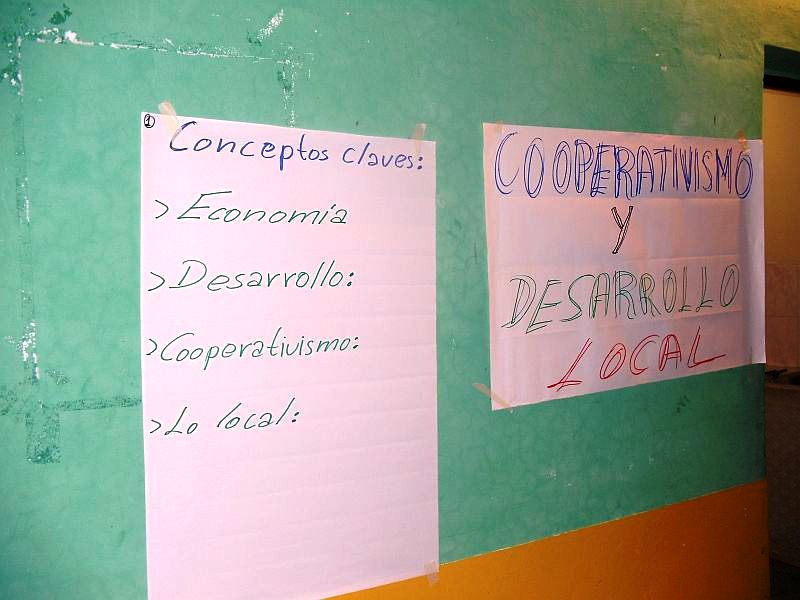 1
Conceptos claves:
> Economía
> Desarrollo:
> Cooperativismo:
> Lo local:
COOPERATIVISMO
Y
DESARROLLO
LOCAL